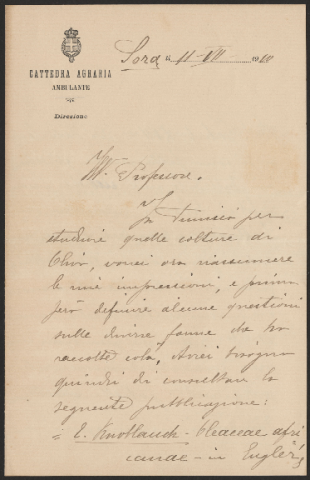 CATTEDRA AGRARIA
AMBULANTE
Direzione
Sora 11-VII 1910
Ill. Professore.
In Tunisia per
studiare quelle colture di
Olivi, vorrei ora riassumere
le mie impressioni, e prima
però definire alcune questioni
sulle diverse forme da me
raccolte colà. Avrei bisogno
quindi di consultare la
seguente pubblicazione:
E. Knoblauch - Oleaceae afri
canae - in Engler's